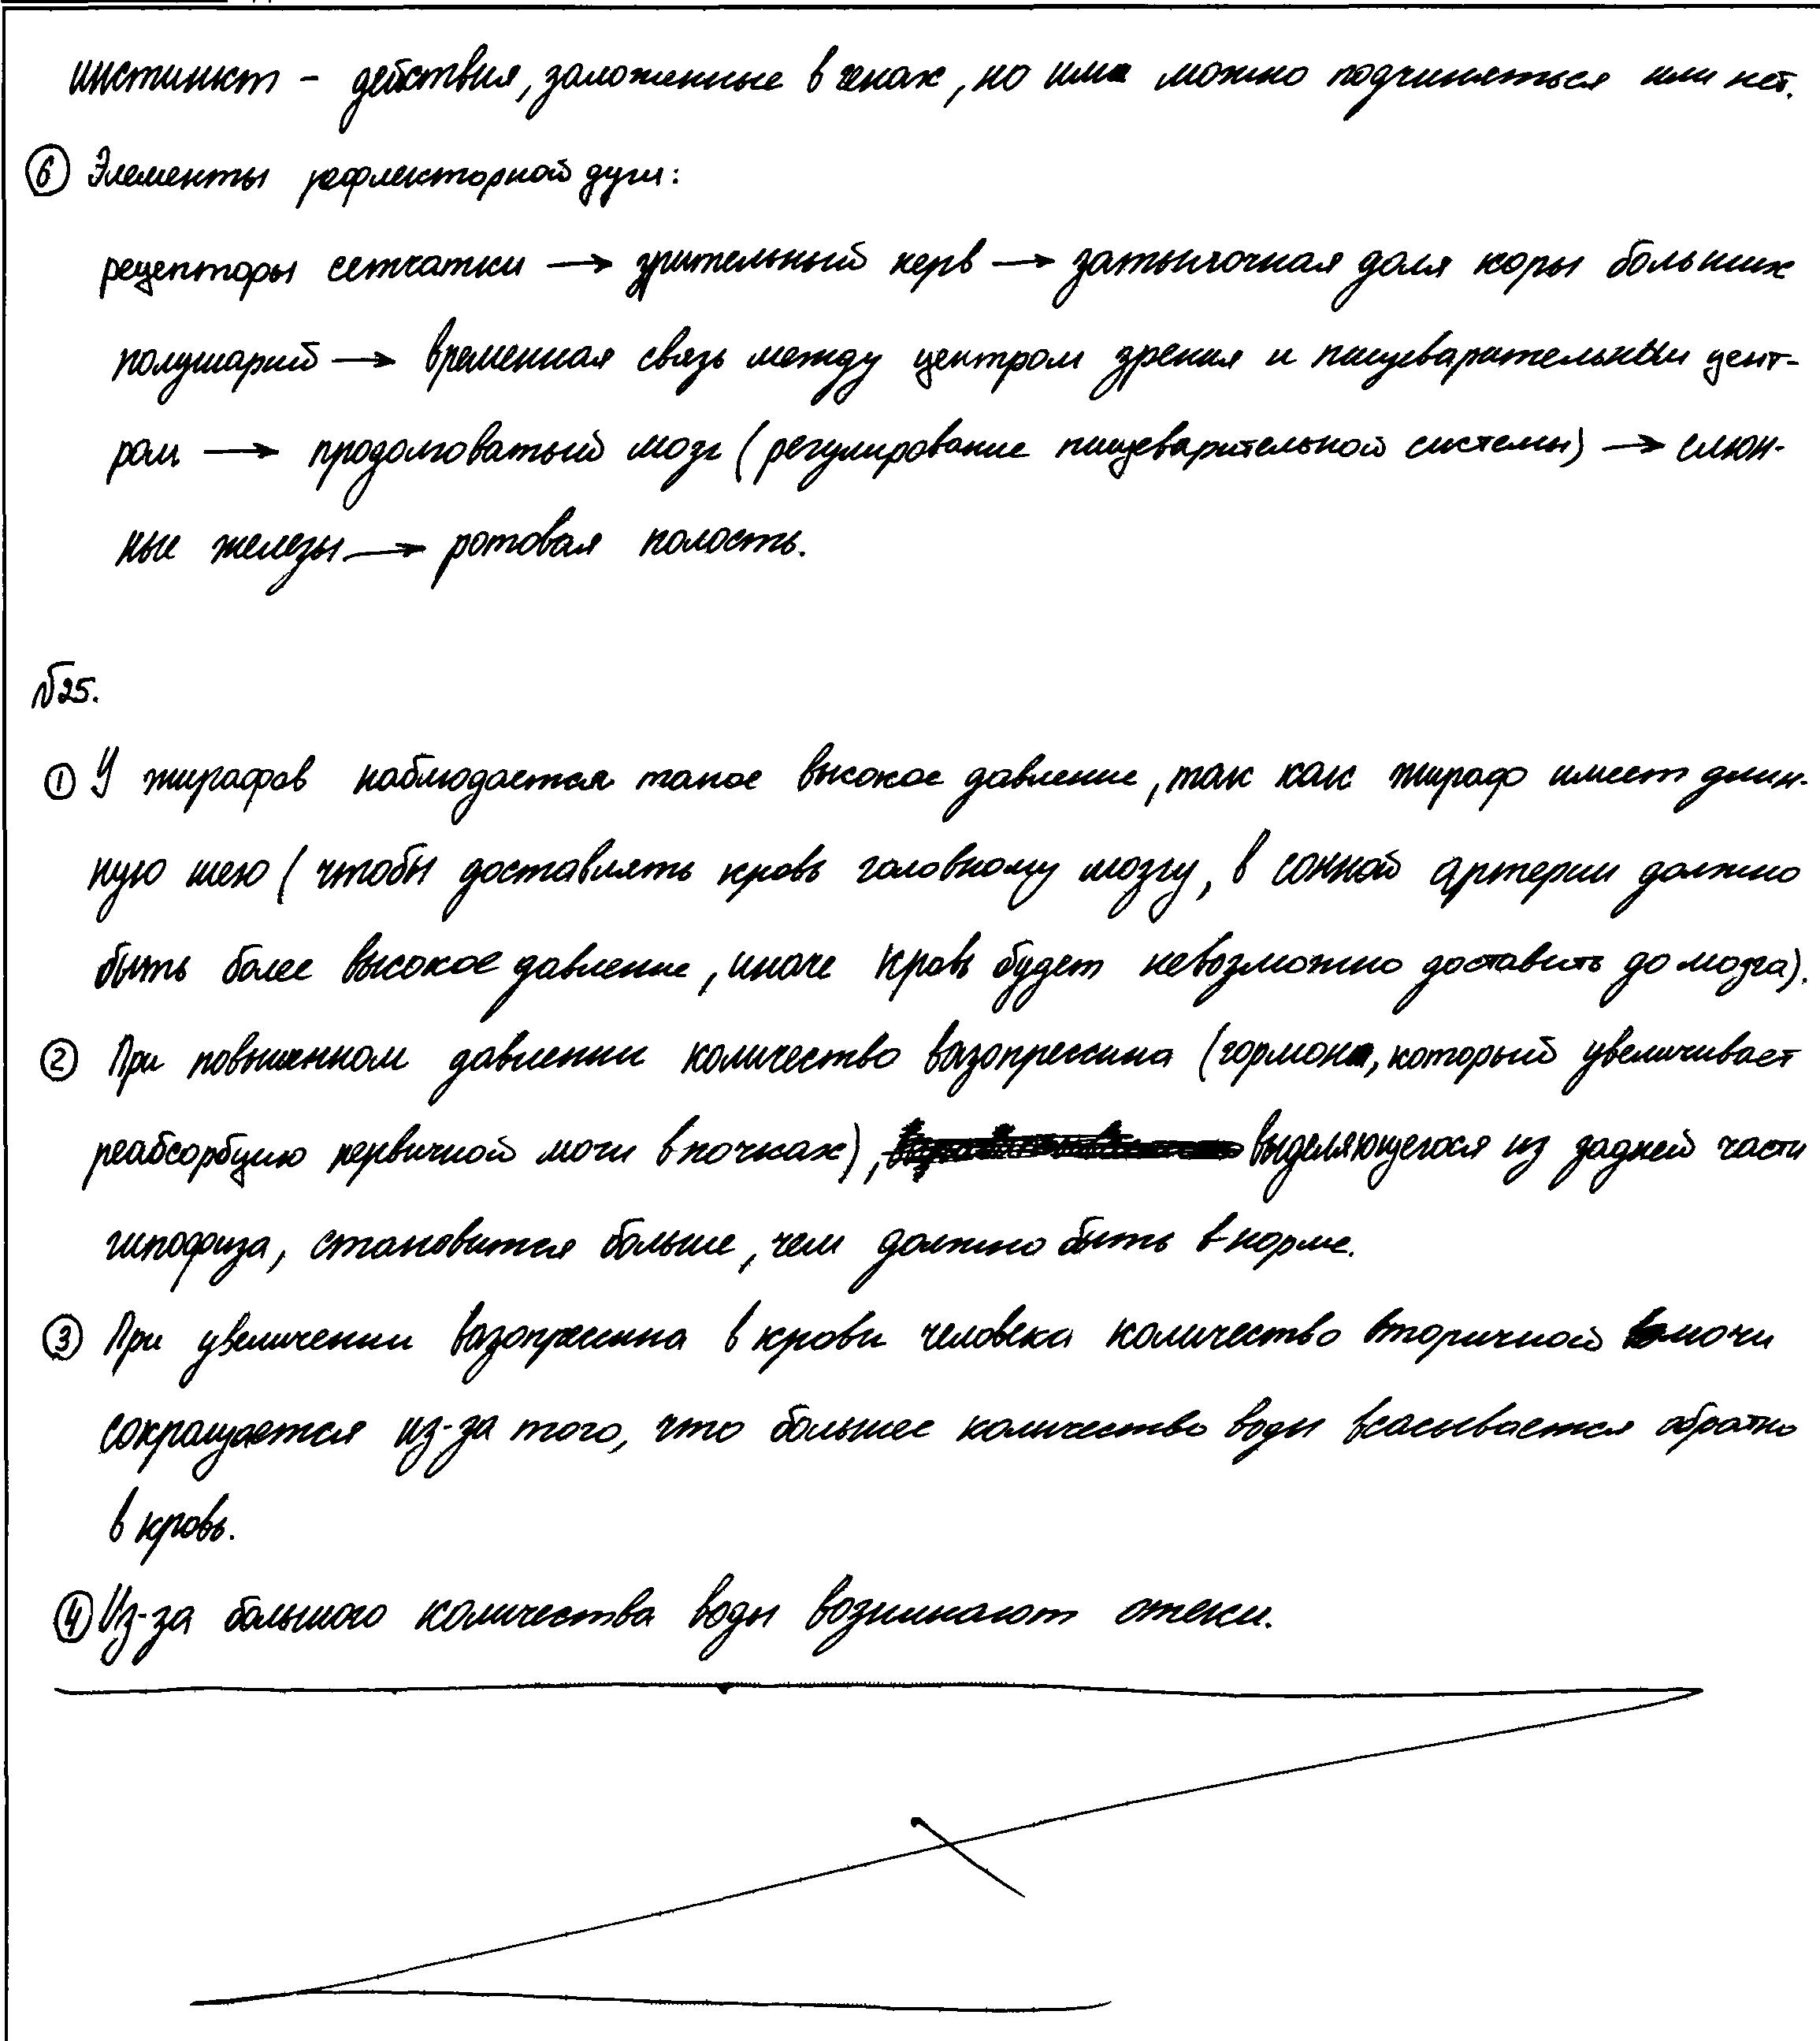 инстинкт – действия, заложенные в генах, но им можно подчиняться или нет.
⑥ Элементы рефлекторной дуги:
рецепторы сетчатки → зрительный нерв → затылочная доля коры больших
полушарий → временная связь между центром зрения и пищеварительным цент-
ром → продолговатый мозг (регулирование пищеварительной системы) → слюн-
ные железы → ротовая полость.
№25.
① У жирафов наблюдается такое высокое давление, так как жираф имеет длин-
ную шею (чтобы доставлять кровь головному мозгу, в сонной артерии должно
быть более высокое давление, иначе кровь будет невозможно доставить до мозга).
② При повышенном давлении количество вазопрессина (гормона, который увеличивает
реабсорбцию первичной мочи в почках), выделяющегося из задней части
гипофиза, становится больше, чем должно быть в норме.
③ При увеличении вазопрессина в крови человека количество вторичной мочи
сокращается из-за того, что большее количество воды всасывается обратно
в кровь.
④ Из-за большого количества воды возникают отеки.